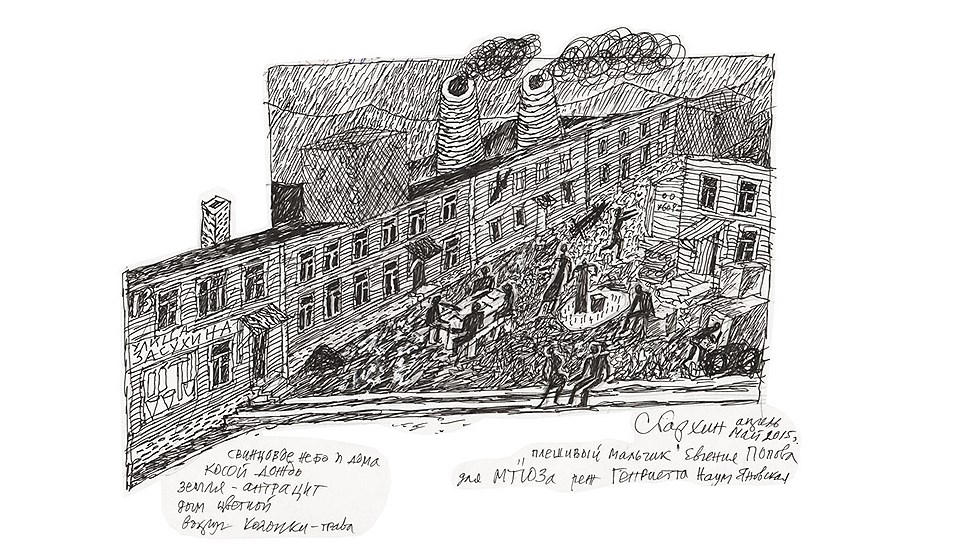 УЛИЦА
ЗАСУХИНА
С Бархин апрель
май 2015г.
„плешивый мальчик" Евгения Попова
для МТЮЗа реж Генриетта Наум Яновская
свинцовое небо и дома
косой дождь
земля - антрацит
дым цветной
вокруг колонки - трава